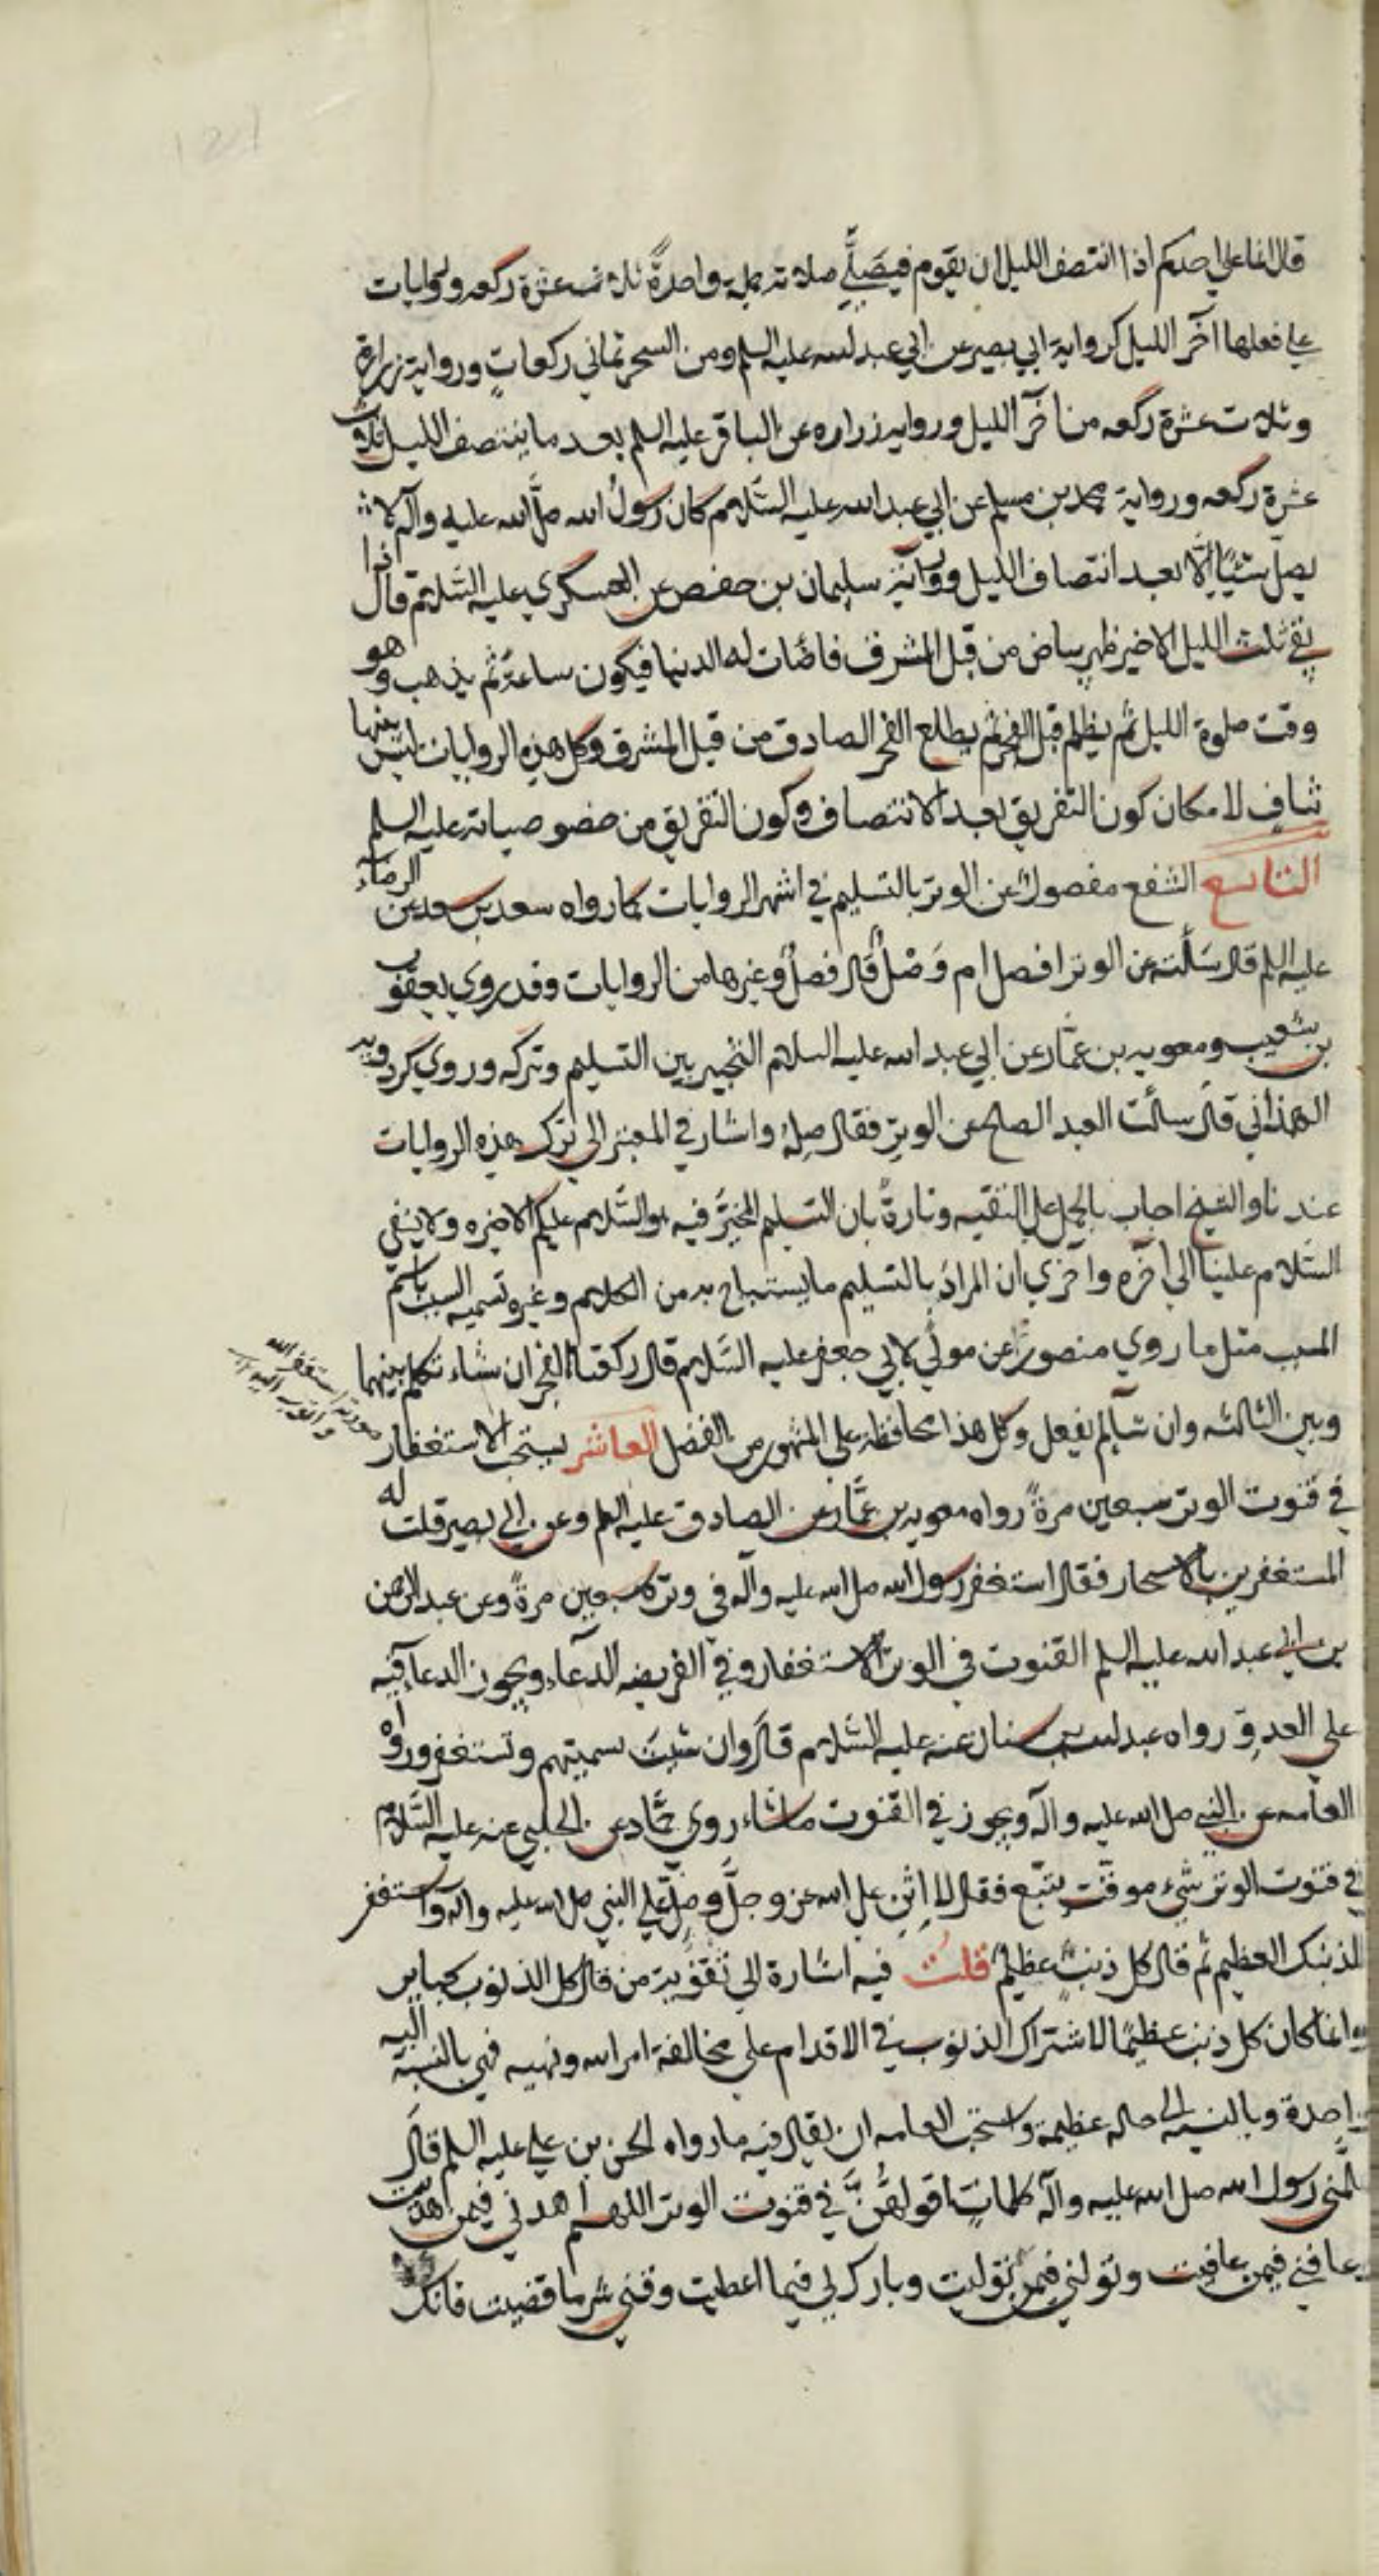 قال انما علي احدكم اذا انتصف الليل ان يقوم فيصَلّي صلاته جملة واحدةً ثلاث عشرة ركعه وروايات
علي فعلها آخر الليل كرواية ابي بصير عن ابي عبد الله عليه السلم ومن السحر ثماني ركعاتٍ ورواية زرارة
وثلاث عشرة ركعه من آخر الليل وروايه زراره عن الباقر عليه السلم بعد ما ينتصف الليل ثلاث
عشرة ركعه ورواية محمد بن مسلم عن ابي عبد الله عليه السَّلام كان رسولُ الله صلَّى الله عليه وآله لا
يصلّ شيئًا إلّا بعد انتصاف الليل ورواية سليمان بن حفص عن العسكري عليه السَّلام قال اذا
بقي ثلث الليل الاخير ظهر بياض من قبل المشرق فاضات له الدنيا فيكون ساعةً ثم يذهب وهو
وقت صلوة الليل ثم يظلم قبل الفجر ثم يطلع الفجر الصادق من قبل المشرق وكل هذه الروايات ليس بينها
تناف لامكان كون التفريق بعد الانتصاف وكون التفريق من خصوصياته عليه السلم
التاسع الشفع مفصولٌ عن الوتر بالتسليم في اشهر الروايات كما رواه سعد بن سعد عن الرضاء
عليه السلم قال سَالته عن الوتر افصل ام وَصْلٌ قال فصلٌ وغيرها من الروايات وقد روي يعقوب
بن شعيب ومعويه بن عمّار عن ابي عبد الله عليه السلام التخيير بين التسليم وتركه وروي كردويه
الهمذاني قال سالت العبد الصالح عن الوتر فقال صِلْهُ واشار في المعتبر الى ترك هذه الروايات
عندنا والشيخ اجاب بالحمل على التقيه وتارةً بان التسليم المخيَّر فيه هو السَّلام عليكم الاخيره ولا ينفي
السَّلام علينا الي آخره واخري ان المرادَ بالتسليم ما يستباح به من الكلام وغيره تسميه السبب باسم
المسبب مثل ما روي منصور عن مولًي لابي جعفر عليه السَّلام قال ركعتا الفجر ان شاء تكلم بينهما
وبين الثالثه وان شآء لم يفعل وكل هذا محافظة على المشهور من الفضل العاشر يستحب الاستغفار
صورته استغفر الله
واتوب اليه
في قنوت الوتر سبعين مرةً رواه معويه بن عمّار عن الصادق عليه السلم وعن ابي بصير قلت له
المستغفرين بالاسحار فقال استغفر رسول الله صلى الله عليه وآله في وتره سبعين مرةً وعن عبد الرحمن
بن ابي عبد الله عليه السلم القنوت في الوتر الاستغفار وفي الفريضه الدعآء ويجوز الدعاء فيه
على العدوِّ رواه عبد الله بن سنان عنه عليه السَّلام قال وان شيتَ سميتهم وتستغفر ورواه
العامه عن النبي صلى الله عليه وآله ويجوز في القنوت ما شاء روي حمَّاد عن الحلبي عنه عليه السَّلام
في قنوت الوتر شيء موقّت يتّبع فقال لا اثنِ على الله عز وجلَّ وصلِّ علي النبي صلى الله عليه واله واستغفر
لذنبك العظيم ثم قال كل ذنبٍ عظيمٌ قلتُ فيه اشارة الي تقوية من قال كل الذنوب كباير
وانما كان كل ذنب عظيمًا لاشتراك الذنوب في الاقدام على مخالفة امر الله ونهيه فهي بالنسبة اليه
واحدة وبالنسبه الى حاله عظيمة واستحب العامه ان يقال فيه ما رواه الحسن بن علي عليه السلم قال
علّمني رسول الله صلى الله عليه وآله كلماتٍ اقولهُنَّ في قنوت الوتر اللهم اهدني فيمن هديت
وعافني فيمن عافيت وتولني فيمن توليت وبارك لي فيما اعطيت وقني شر ما قضيت فانك